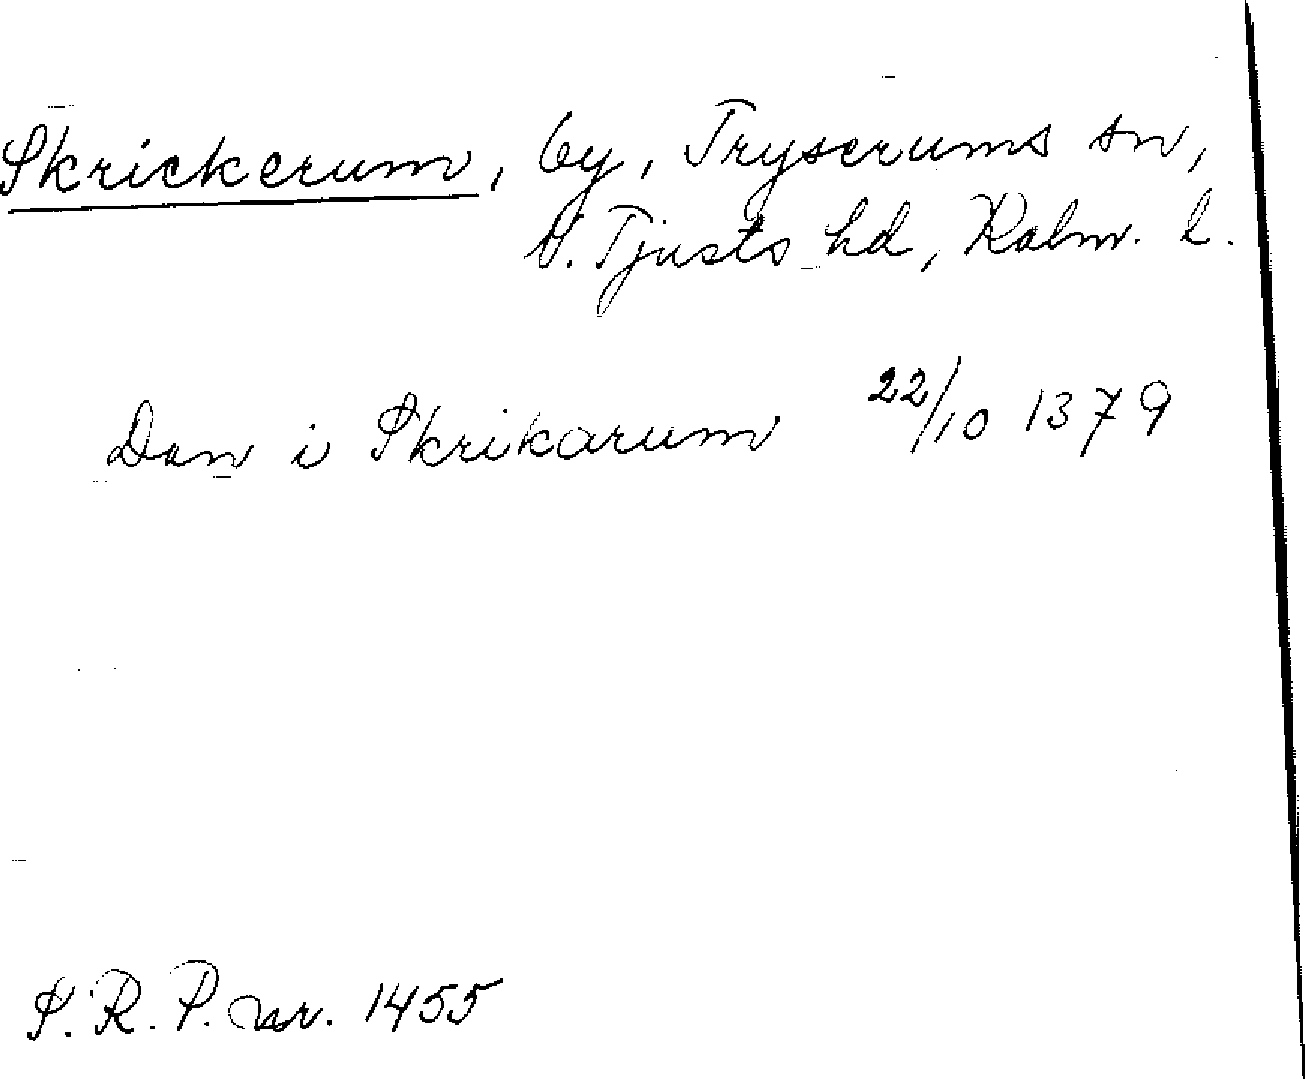 Skrickerum, by, Tryserums sn,
N. Tjusts hd, Kalm. l.
Dan i Skrikarum 22/10 1379
S. R. P. nr. 1455